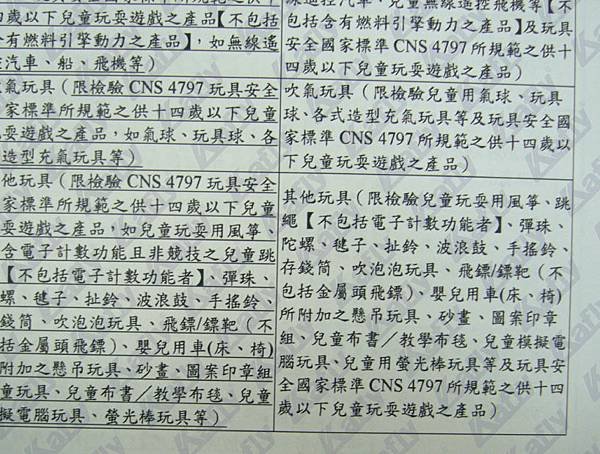 不包括
有燃料引擎動力之產品】,如無線遙
汽車、船、飛機等)
線遙控汽車、兒童無線遙控飛機等【不
包括含有燃料引擎動力之產品】及玩具
安全國家標準 CNS 4797 所規範之供十
四歲以下兒童玩耍遊戲之產品)
吹氣玩具(限檢驗 CNS 4797 玩具安全
家標準所規範之供十四歲以下兒童
耍遊戲之產品,如氣球、玩具球、各
造型充氣玩具等)
吹氣玩具(限檢驗兒童用氣球、玩具
球、各式造型充氣玩具等及玩具安全國
家標準 CNS 4797 所規範之供十四歲以
下兒童玩耍遊戲之產品)
他玩具(限檢驗 CNS 4797 玩具安全
家標準所規範之供十四歲以下兒童
耍遊戲之產品,如兒童玩耍用風箏、
含電子計數功能且非競技之兒童跳
【不包括電子計數功能者】、彈珠、
螺、毽子、扯鈴、波浪鼓、手搖鈴、
錢筒、吹泡泡玩具、飛鏢/鏢靶(不
括金屬頭飛鏢)、嬰兒用車(床、椅)
附加之懸吊玩具、砂畫、圖案印章組
童玩具、兒童布書/教學布毯、兒童
擬電腦玩具、螢光棒玩具等)
其他玩具(限檢驗兒童玩耍用風箏、跳
繩【不包括電子計數功能者】、彈珠、
陀螺、毽子、扯鈴、波浪鼓、手搖鈴、
存錢筒、吹泡泡玩具、飛鏢/鏢靶(不
包括金屬頭飛鏢)、嬰兒用車(床、椅)
所附加之懸吊玩具、砂畫、圖案印章
組、兒童布書/教學布毯、兒童模擬電
腦玩具、兒童用螢光棒玩具等及玩具安
全國家標準 CNS 4797 所規範之供十四
歲以下兒童玩耍遊戲之產品)